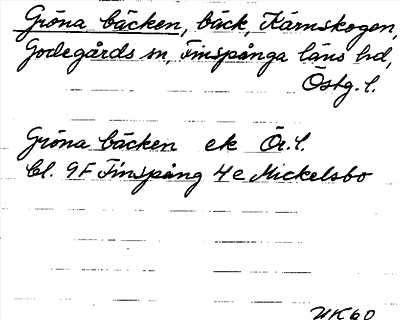 Gröna bäcken, bäck, Kärnskogen,
Godegårds sn, Finspånga läns hd,
Östg. l.
Gröna bäcken ek Ör. l.
bl. 9F Finspång 4e Mickelsbo
UK60